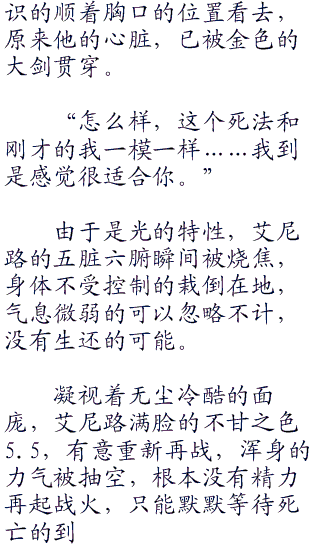 识的顺着胸口的位置看去，
原来他的心脏，已被金色的
大剑贯穿。
“怎么样，这个死法和
刚才的我一模一样……我到
是感觉很适合你。”
由于是光的特性，艾尼
路的五脏六腑瞬间被烧焦，
身体不受控制的栽倒在地，
气息微弱的可以忽略不计，
没有生还的可能。
凝视着无尘冷酷的面
庞，艾尼路满脸的不甘之色
5.5，有意重新再战，浑身的
力气被抽空，根本没有精力
再起战火，只能默默等待死
亡的到